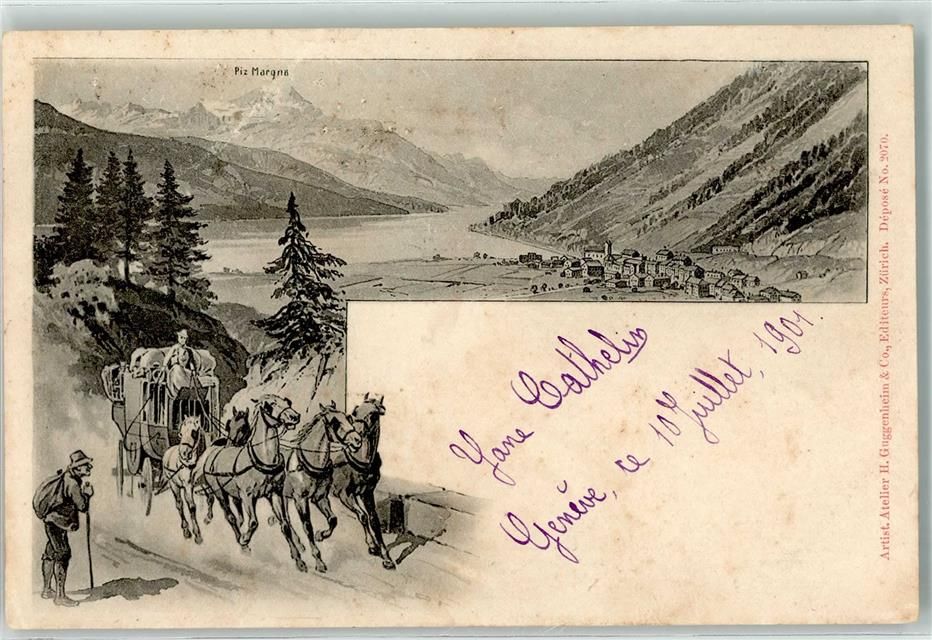 Piz Margna
Jane Cathelin
Genève, ce 10 Juillet, 1901.
Artist. Atelier H. Guggenheim & Co., Editeurs, Zürich. Déposé No. 2070.